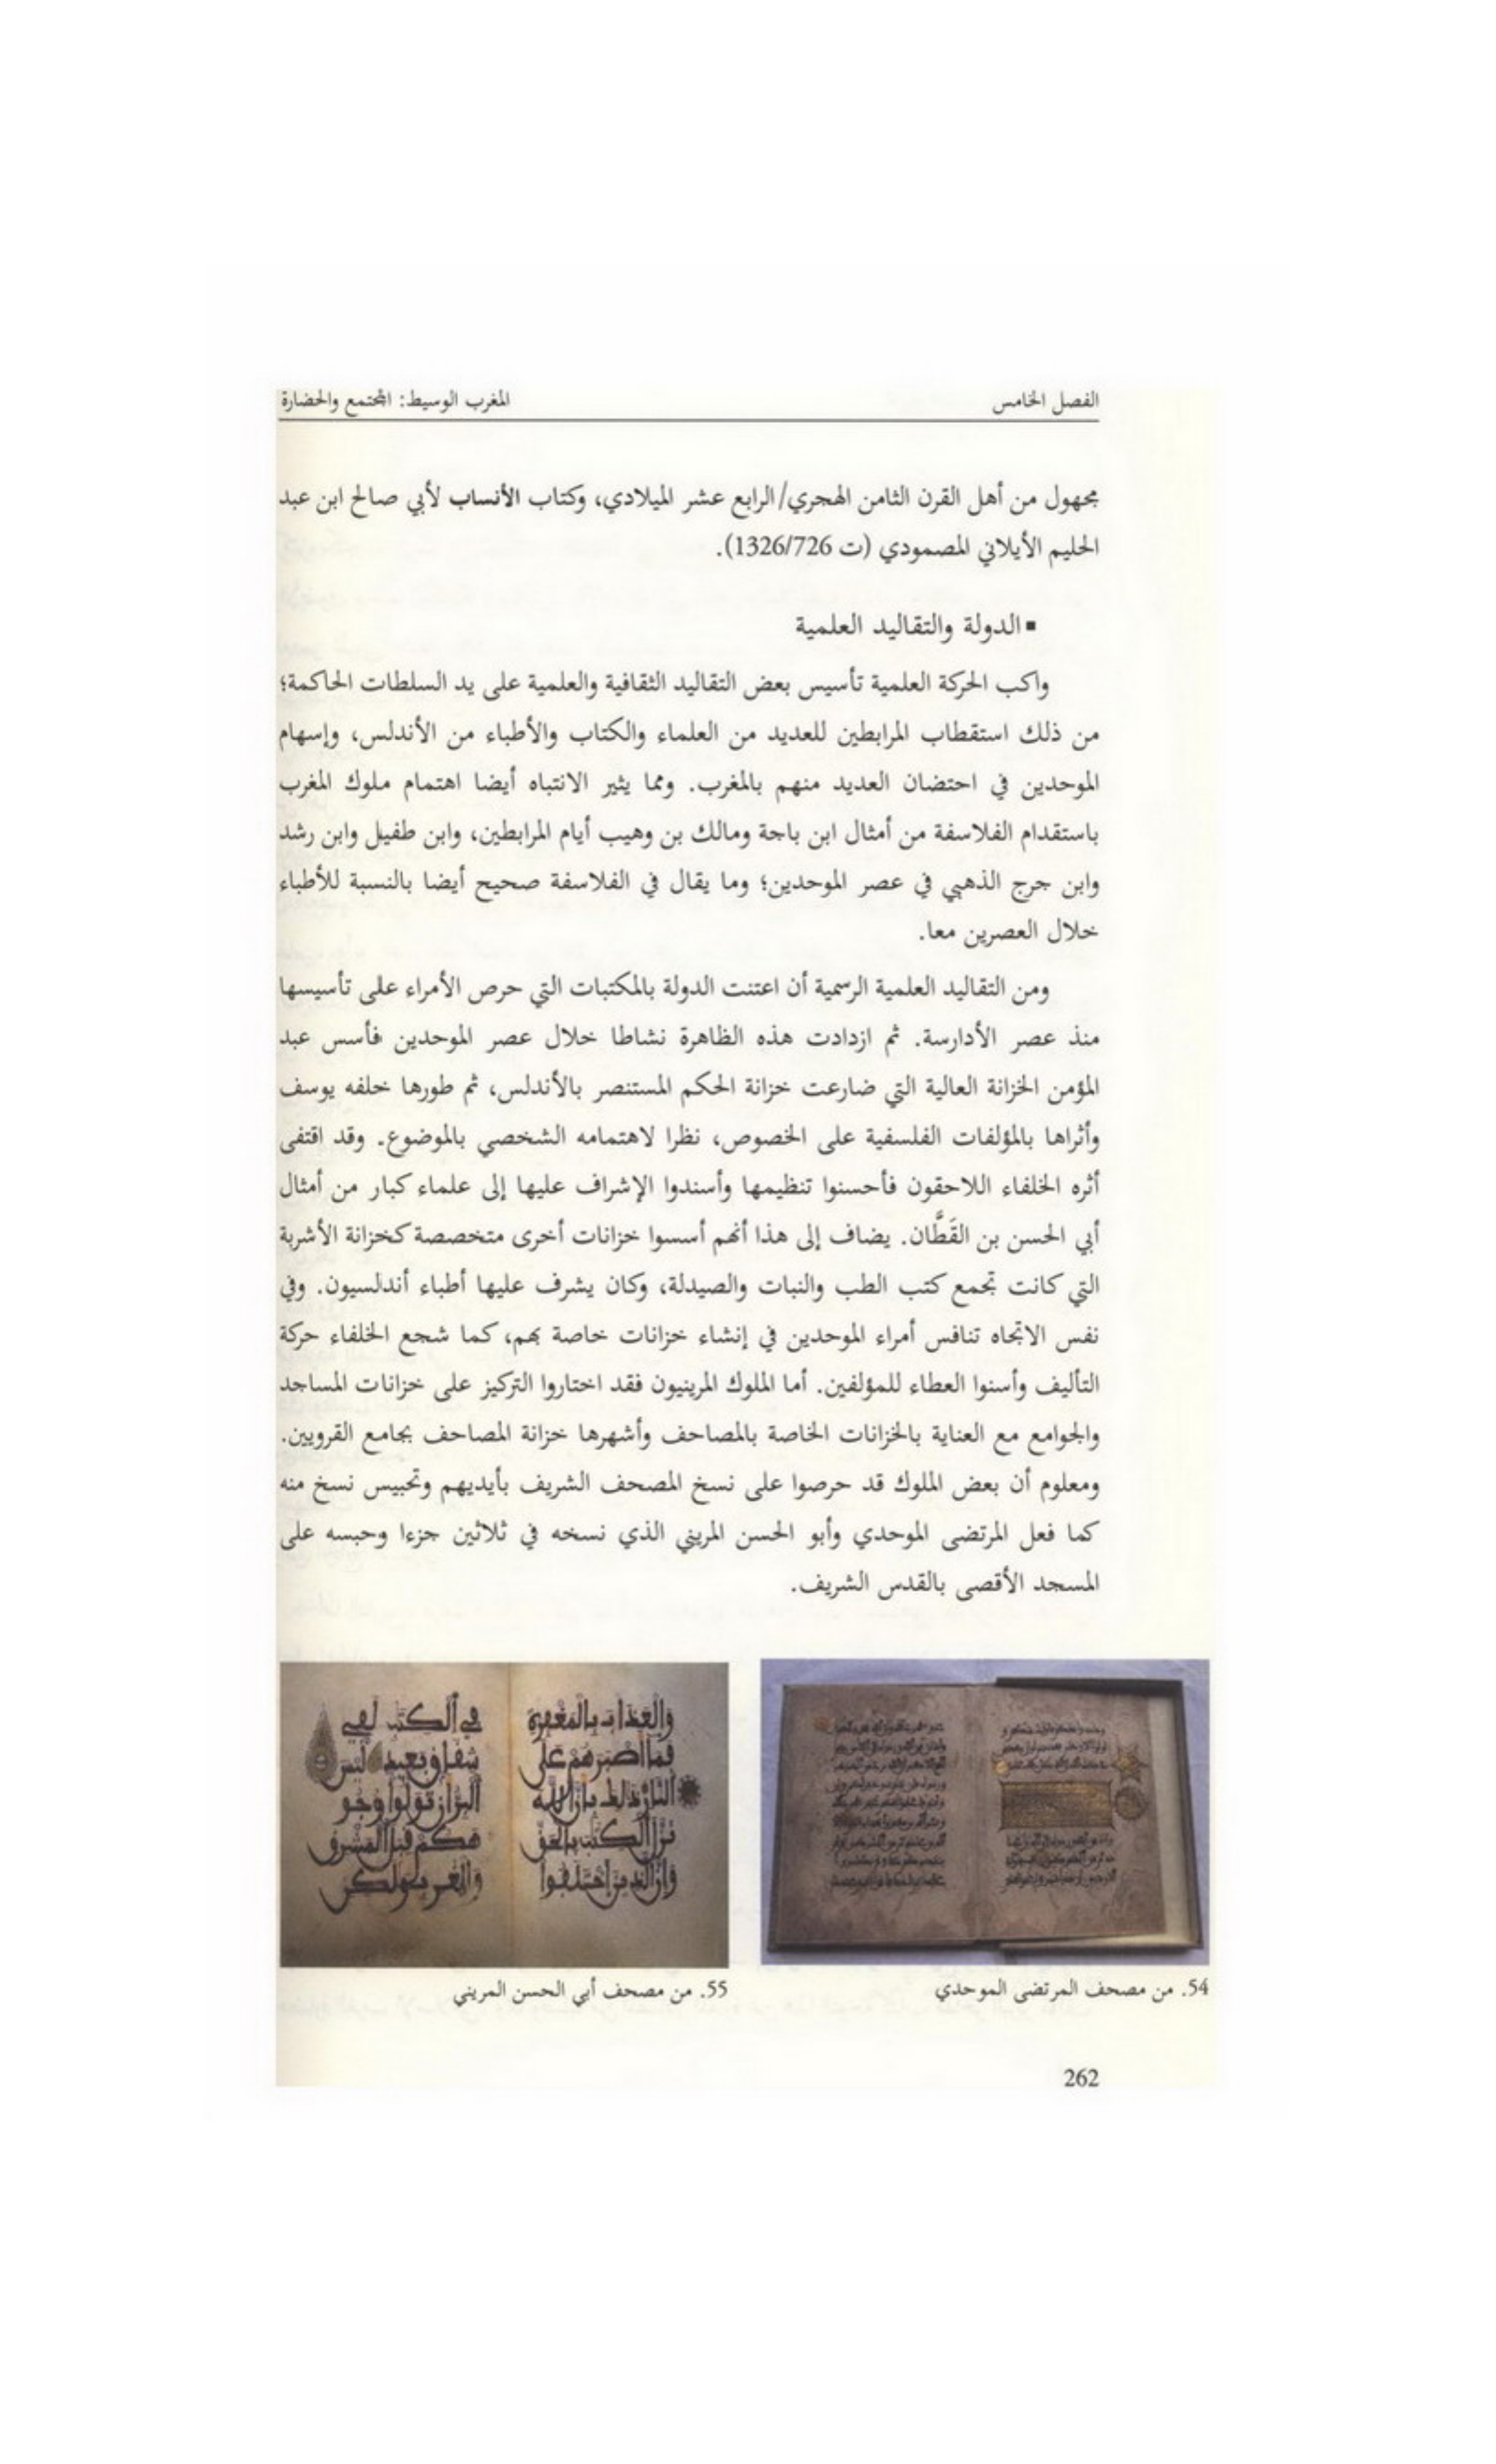 الفصل الخامس
المغرب الوسيط: المجتمع والحضارة
مجهول من أهل القرن الثامن الهجري/الرابع عشر الميلادي، وكتاب الأنساب لأبي صالح ابن عبد
الحليم الأيلاني المصمودي (ت 1326/726).
▪ الدولة والتقاليد العلمية
واكب الحركة العلمية تأسيس بعض التقاليد الثقافية والعلمية على يد السلطات الحاكمة؛
من ذلك استقطاب المرابطين للعديد من العلماء والكتاب والأطباء من الأندلس، وإسهام
الموحدين في احتضان العديد منهم بالمغرب. ومما يثير الانتباه أيضا اهتمام ملوك المغرب
باستقدام الفلاسفة من أمثال ابن باجة ومالك بن وهيب أيام المرابطين، وابن طفيل وابن رشد
وابن جرج الذهبي في عصر الموحدين؛ وما يقال في الفلاسفة صحيح أيضا بالنسبة للأطباء
خلال العصرين معا.
ومن التقاليد العلمية الرسمية أن اعتنت الدولة بالمكتبات التي حرص الأمراء على تأسيسها
منذ عصر الأدارسة. ثم ازدادت هذه الظاهرة نشاطا خلال عصر الموحدين فأسس عبد
المؤمن الخزانة العالية التي ضارعت خزانة الحكم المستنصر بالأندلس، ثم طورها خلفه يوسف
وأثراها بالمؤلفات الفلسفية على الخصوص، نظرا لاهتمامه الشخصي بالموضوع. وقد اقتفى
أثره الخلفاء اللاحقون فأحسنوا تنظيمها وأسندوا الإشراف عليها إلى علماء كبار من أمثال
أبي الحسن بن القَطَّان. يضاف إلى هذا أنهم أسسوا خزانات أخرى متخصصة كخزانة الأشربة
التي كانت تجمع كتب الطب والنبات والصيدلة، وكان يشرف عليها أطباء أندلسيون. وفي
نفس الاتجاه تنافس أمراء الموحدين في إنشاء خزانات خاصة بهم، كما شجع الخلفاء حركة
التأليف وأسنوا العطاء للمؤلفين. أما الملوك المرينيون فقد اختاروا التركيز على خزانات المساجد
والجوامع مع العناية بالخزانات الخاصة بالمصاحف وأشهرها خزانة المصاحف بجامع القرويين.
ومعلوم أن بعض الملوك قد حرصوا على نسخ المصحف الشريف بأيديهم وتحبيس نسخ منه
كما فعل المرتضى الموحدي وأبو الحسن المريني الذي نسخه في ثلاثين جزءا وحبسه على
المسجد الأقصى بالقدس الشريف.
والعذاب بالمغفرة
فما أصبرهم على
النار ذلك بأن الله
نزل الكتب بالحق
وإن الذين اختلفوا
في الكتب لفي
شقاق بعيد ليس
البر أن تولوا وجو
هكم قبل المشرق
والمغرب ولكن
54. من مصحف المرتضى الموحدي
55. من مصحف أبي الحسن المريني
262